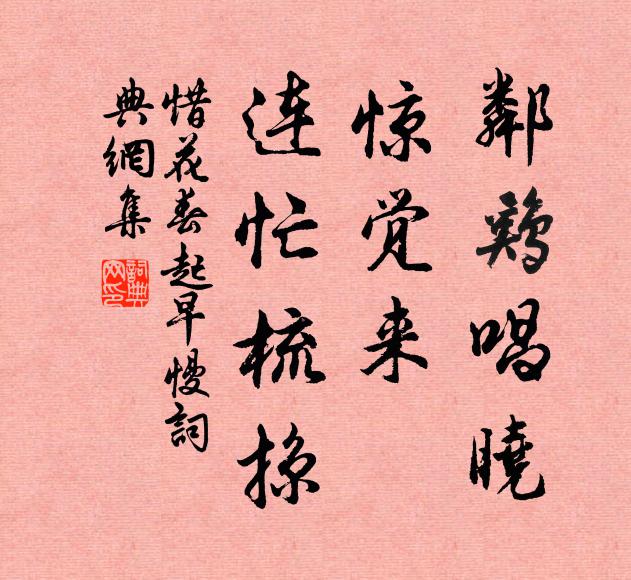 鄰鷄唱曉
惊觉来
连忙梳掠
惜花春起早慢詞
典網集
詞典
网印